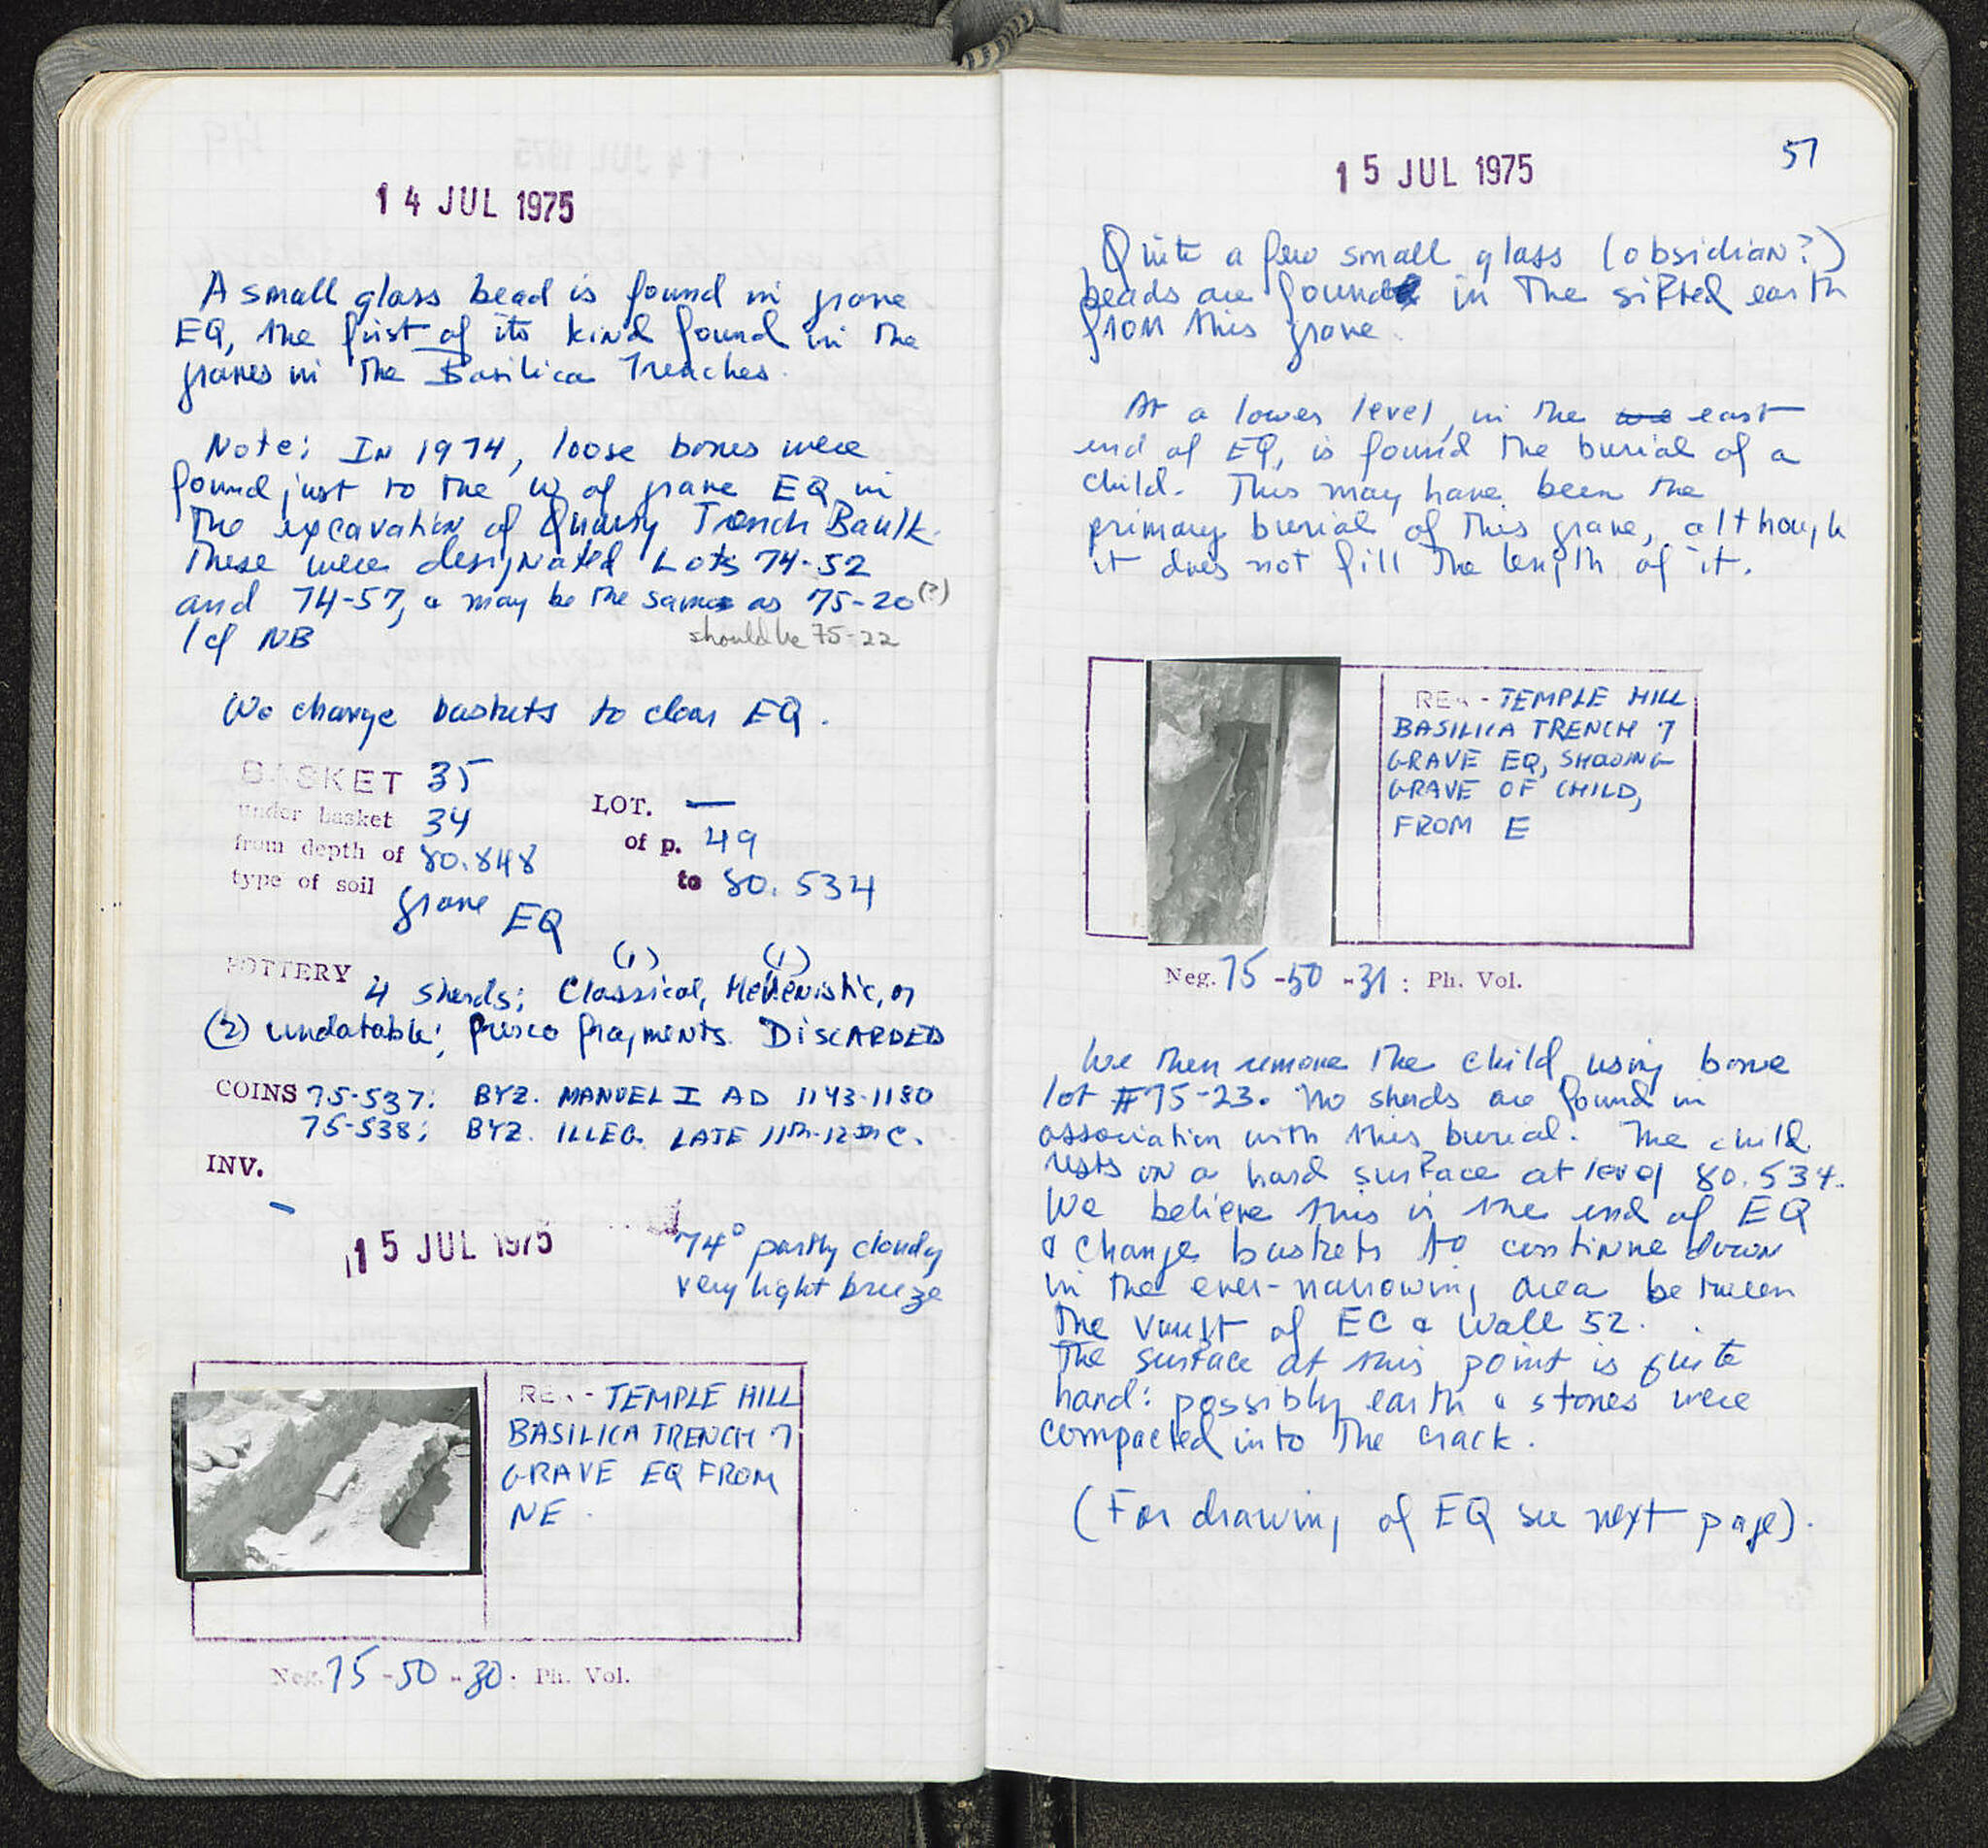 14 JUL 1975
A small glass bead is found in grave
EQ, the first of its kind found in the
graves in the Basilica Trenches.
Note: In 1974, loose bones were
found just to the W of grave EQ in
the excavation of Quarry Trench Baulk.
These were designated Lots 74-52
and 74-57, & may be the same as 75-20 (?)
/cf NB
should be 75-22
We change baskets to clear EQ.
BASKET 35
LOT. —
under basket 34
of p. 49
from depth of 80.848
to 80.534
type of soil grave EQ
(1) (1)
POTTERY 4 sherds; Classical, Hellenistic, or
(2) undatable; fresco fragments. DISCARDED
COINS 75-537: BYZ. MANUEL I AD 1143-1180
75-538; BYZ. ILLEG. LATE 11th-12th C.
INV.
—
15 JUL 1975
74° partly cloudy
very light breeze
- TEMPLE HILL
BASILICA TRENCH 7
GRAVE EQ FROM
NE.
Neg. 75-50-30: Ph. Vol.
51
15 JUL 1975
Quite a few small glass (obsidian?)
beads are found in the sifted earth
from this grave.
At a lower level, in the east
end of EQ, is found the burial of a
child. This may have been the
primary burial of this grave, although
it does not fill the length of it.
- TEMPLE HILL
BASILICA TRENCH 7
GRAVE EQ, SHOWING
GRAVE OF CHILD,
FROM E
Neg. 75-50-31: Ph. Vol.
We then remove the child using bone
lot #75-23. No sherds are found in
association with this burial. The child
rests on a hard surface at level 80.534.
We believe this is the end of EQ
& change baskets to continue down
in the ever-narrowing area between
the vault of EC & Wall 52.
The surface at this point is quite
hard: possibly earth & stones were
compacted into the crack.
(For drawing of EQ see next page).